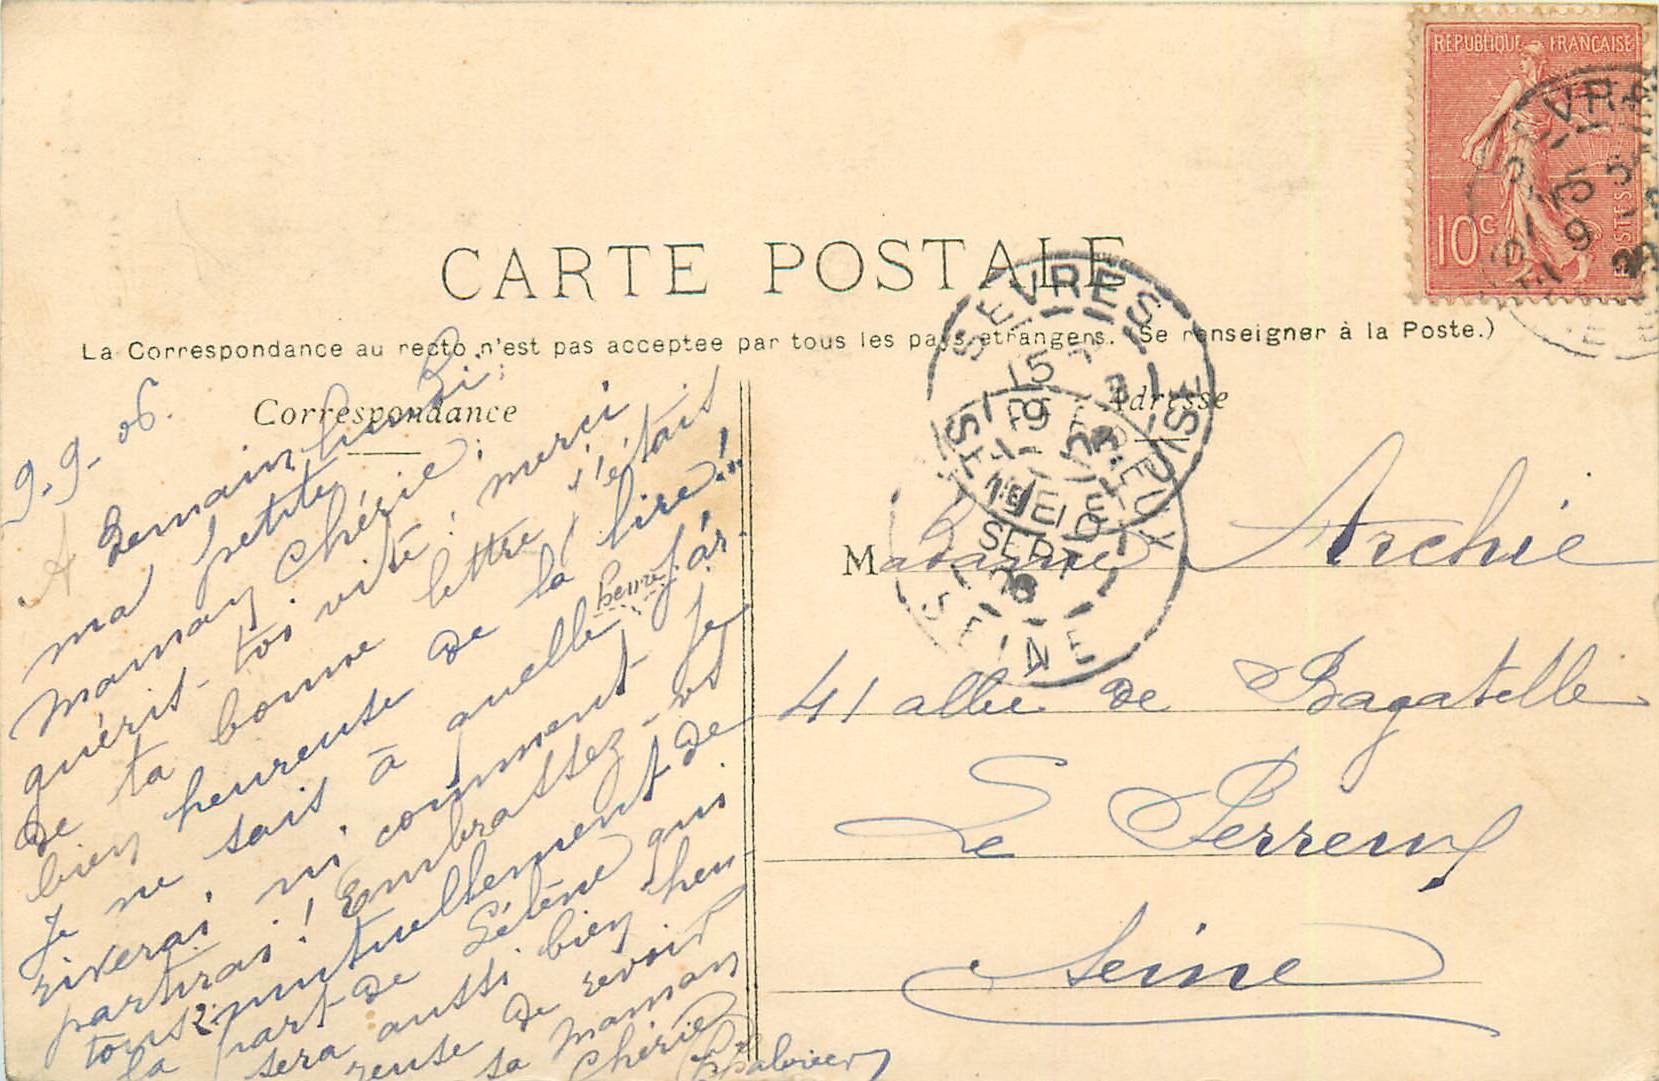 REPUBLIQUE FRANÇAISE
10c
POSTES
CARTE POSTALE
La Correspondance au recto n'est pas acceptee par tous les pays etrangers. (Se renseigner à la Poste.)
Correspondance
Adresse
9-9-06.
A Demain lundi;
ma petite
maman chérie;
guérit-toi vite! merci
de ta bonne lettre j'étais
bien heureuse de la lire!!
Je ne sais à quelle heure j'ar-
riverai, ni comment je
partirai! Embrassez-vs
tous 2 mutuellement de
la part de Hélène qui
sera aussi bien heu-
reuse de revoir
sa Maman
Chérie
Madame Archie
41 allée de Bagatelle
Le Perreux
Seine
SEVRES
15
9
SEINE
SEPT